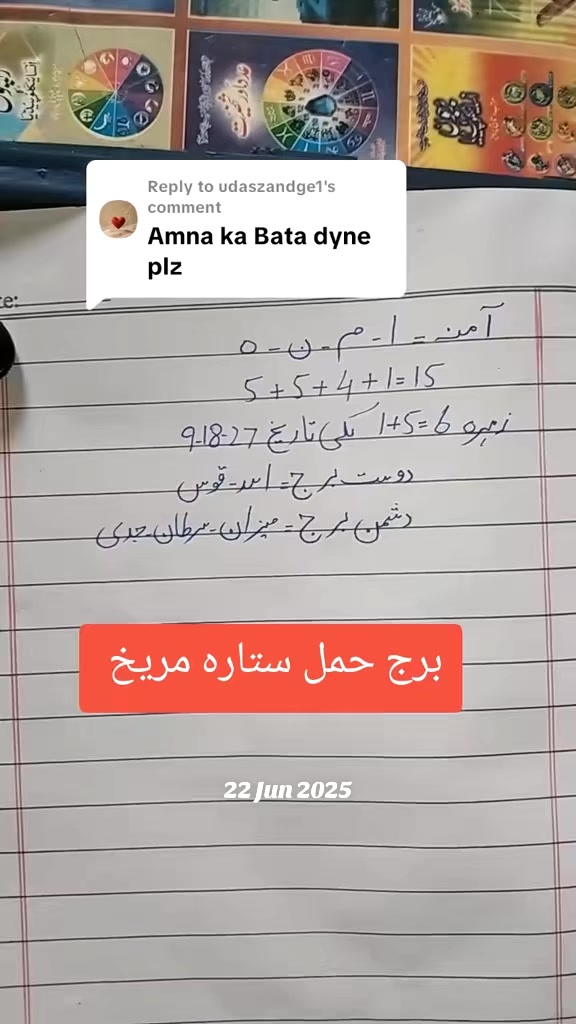 Reply to udaszandge1's
comment
Amna ka Bata dyne
plz
te:
آمنہ = ا - م - ن - ہ
5+5+4+1=15
زہرہ 6=5+1 لکی تاریخ 27-18-9
دوست برج = اسد - قوس
دشمن برج = میزان - سرطان - جدی
برج حمل ستارہ مریخ
22 Jun 2025